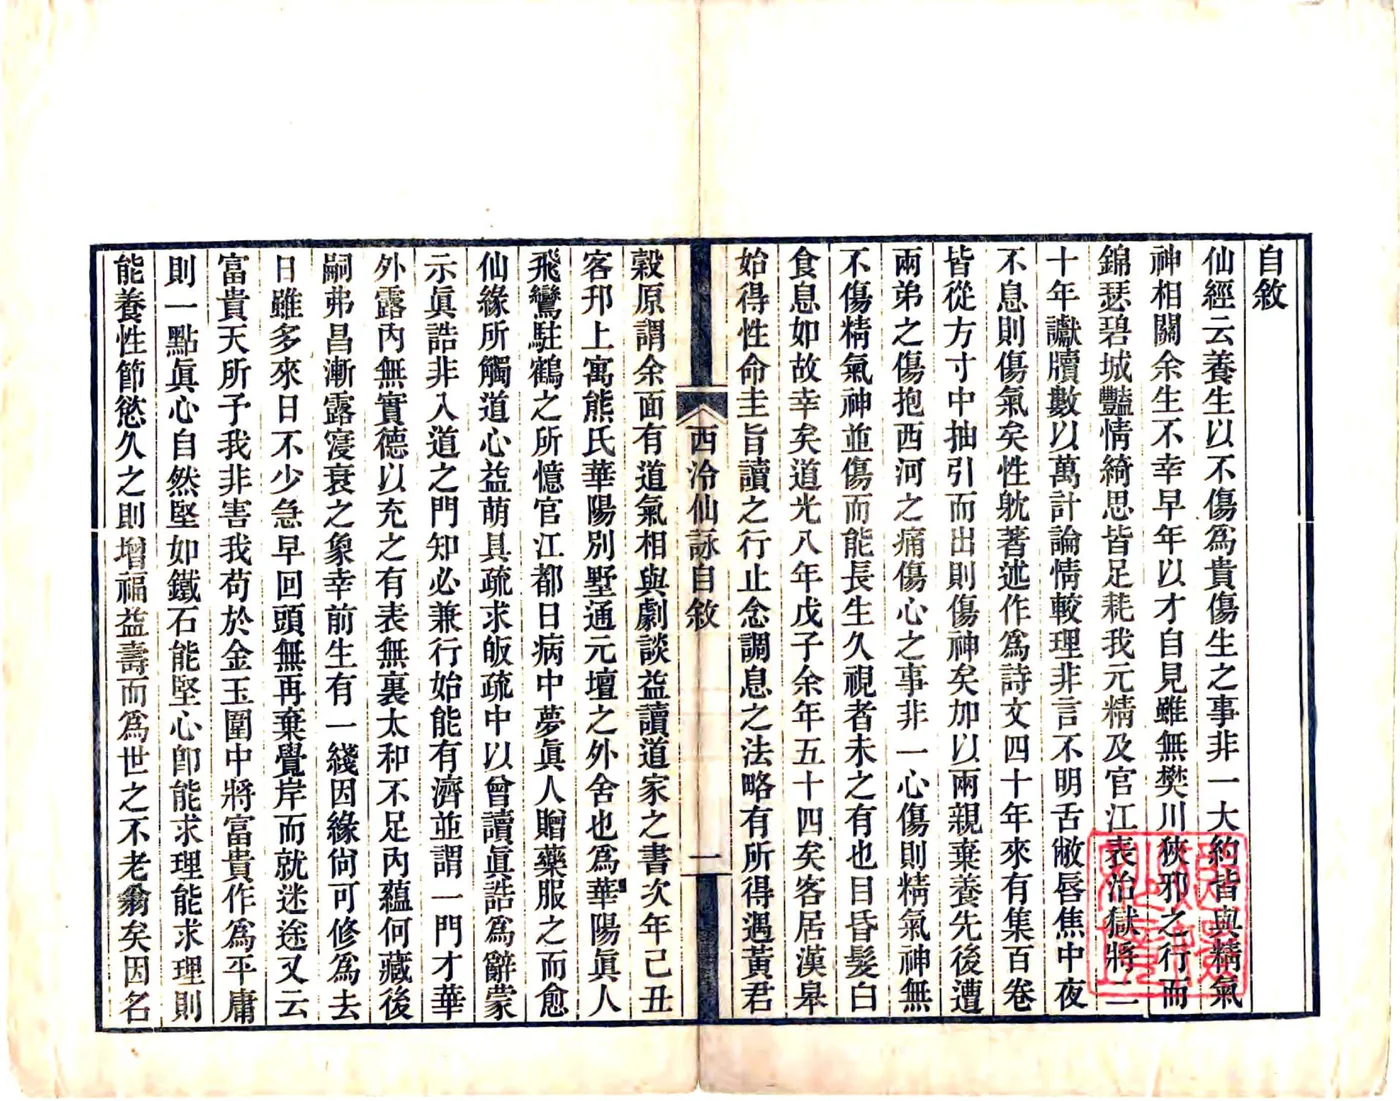 自敘
仙經云養生以不傷爲貴傷生之事非一大約皆與精氣
神相關余生不幸早年以才自見雖無樊川狹邪之行而
錦瑟碧城豔情綺思皆足耗我元精及官江表治獄將二
十年讞牘數以萬計論情較理非言不明舌敝唇焦中夜
不息則傷氣矣性躭著述作爲詩文四十年來有集百卷
皆從方寸中抽引而出則傷神矣加以兩親棄養先後遭
兩弟之傷抱西河之痛傷心之事非一心傷則精氣神無
不傷精氣神並傷而能長生久視者未之有也目昏髮白
食息如故幸矣道光八年戊子余年五十四矣客居漢皋
始得性命圭旨讀之行止念調息之法略有所得遇黃君
西泠仙詠自敘
一
穀原謂余面有道氣相與劇談益讀道家之書次年己丑
客邗上寓熊氏華陽別墅通元壇之外舍也爲華陽眞人
飛鸞駐鶴之所憶官江都日病中夢眞人贈藥服之而愈
仙緣所觸道心益萌具疏求皈疏中以曾讀眞誥爲辭蒙
示眞誥非入道之門知必兼行始能有濟並謂一門才華
外露內無實德以充之有表無裏太和不足內蘊何藏後
嗣弗昌漸露寖衰之象幸前生有一綫因緣尙可修爲去
日雖多來日不少急早回頭無再棄覺岸而就迷途又云
富貴天所予我非害我苟於金玉圍中將富貴作爲平庸
則一點眞心自然堅如鐵石能堅心卽能求理能求理則
能養性節慾久之則增福益壽而爲世之不老翁矣因名